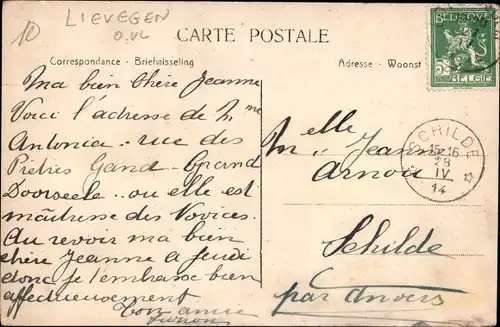 10
LIEVEGEN
O.VL
CARTE POSTALE
Correspondance - Briefwisseling
Adresse - Woonst
5c 5c
BELGIË
SCHILDE
15-16
28
IV
14
Ma bien chère Jeanne
Voici l'adresse de Mme
Antonia rue des
Prêtres Gand - Grand
ou elle est
maîtresse des Novices.
Au revoir ma bien
chère Jeanne à jeudi
donc je t'embrasse bien
affectueusement
Ton amie
Melle Jeanne
Arnou
Schilde
par Anvers